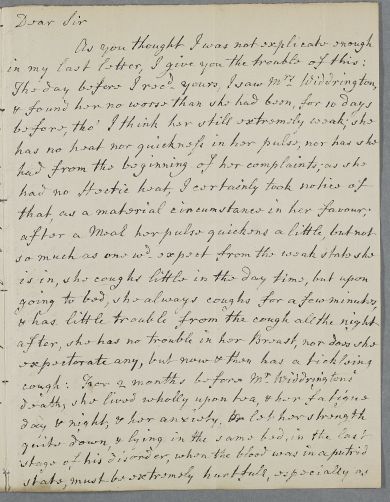 Dear Sir
As you thought I was not explicate enough
in my last letter, I give you the trouble of this:
The day before I recd. yours, I saw Mrs Widdrington,
& found her no worse than she had been, for 10 days
before, tho' I think her still extremely weak; she
has no heat nor quickness in her pulse, nor has she
had from the beginning of her complaints, as she
had no Hectic heat, I certainly took notice of
that, as a material circumstance in her favour;
after a Meal her pulse quickens a little, but not
so much as one wd. expect from the weak state she
is in, she coughs little in the day time, but upon
going to bed, she always coughs for a few minutes,
& has little trouble from the cough all the night
after, she has no trouble in her Breast, nor does she
expectorate any, but now & then has a tickleing
cough: For 2 months before Mr. Widdrington's
death, she lived wholly upon tea, & her fatigue
day & night, & her anxiety, let her strength
quite down, & lying in the same bed, in the last
stage of his disorder, when the blood was in a putrid
state, must be extremely hurtfull, especially as